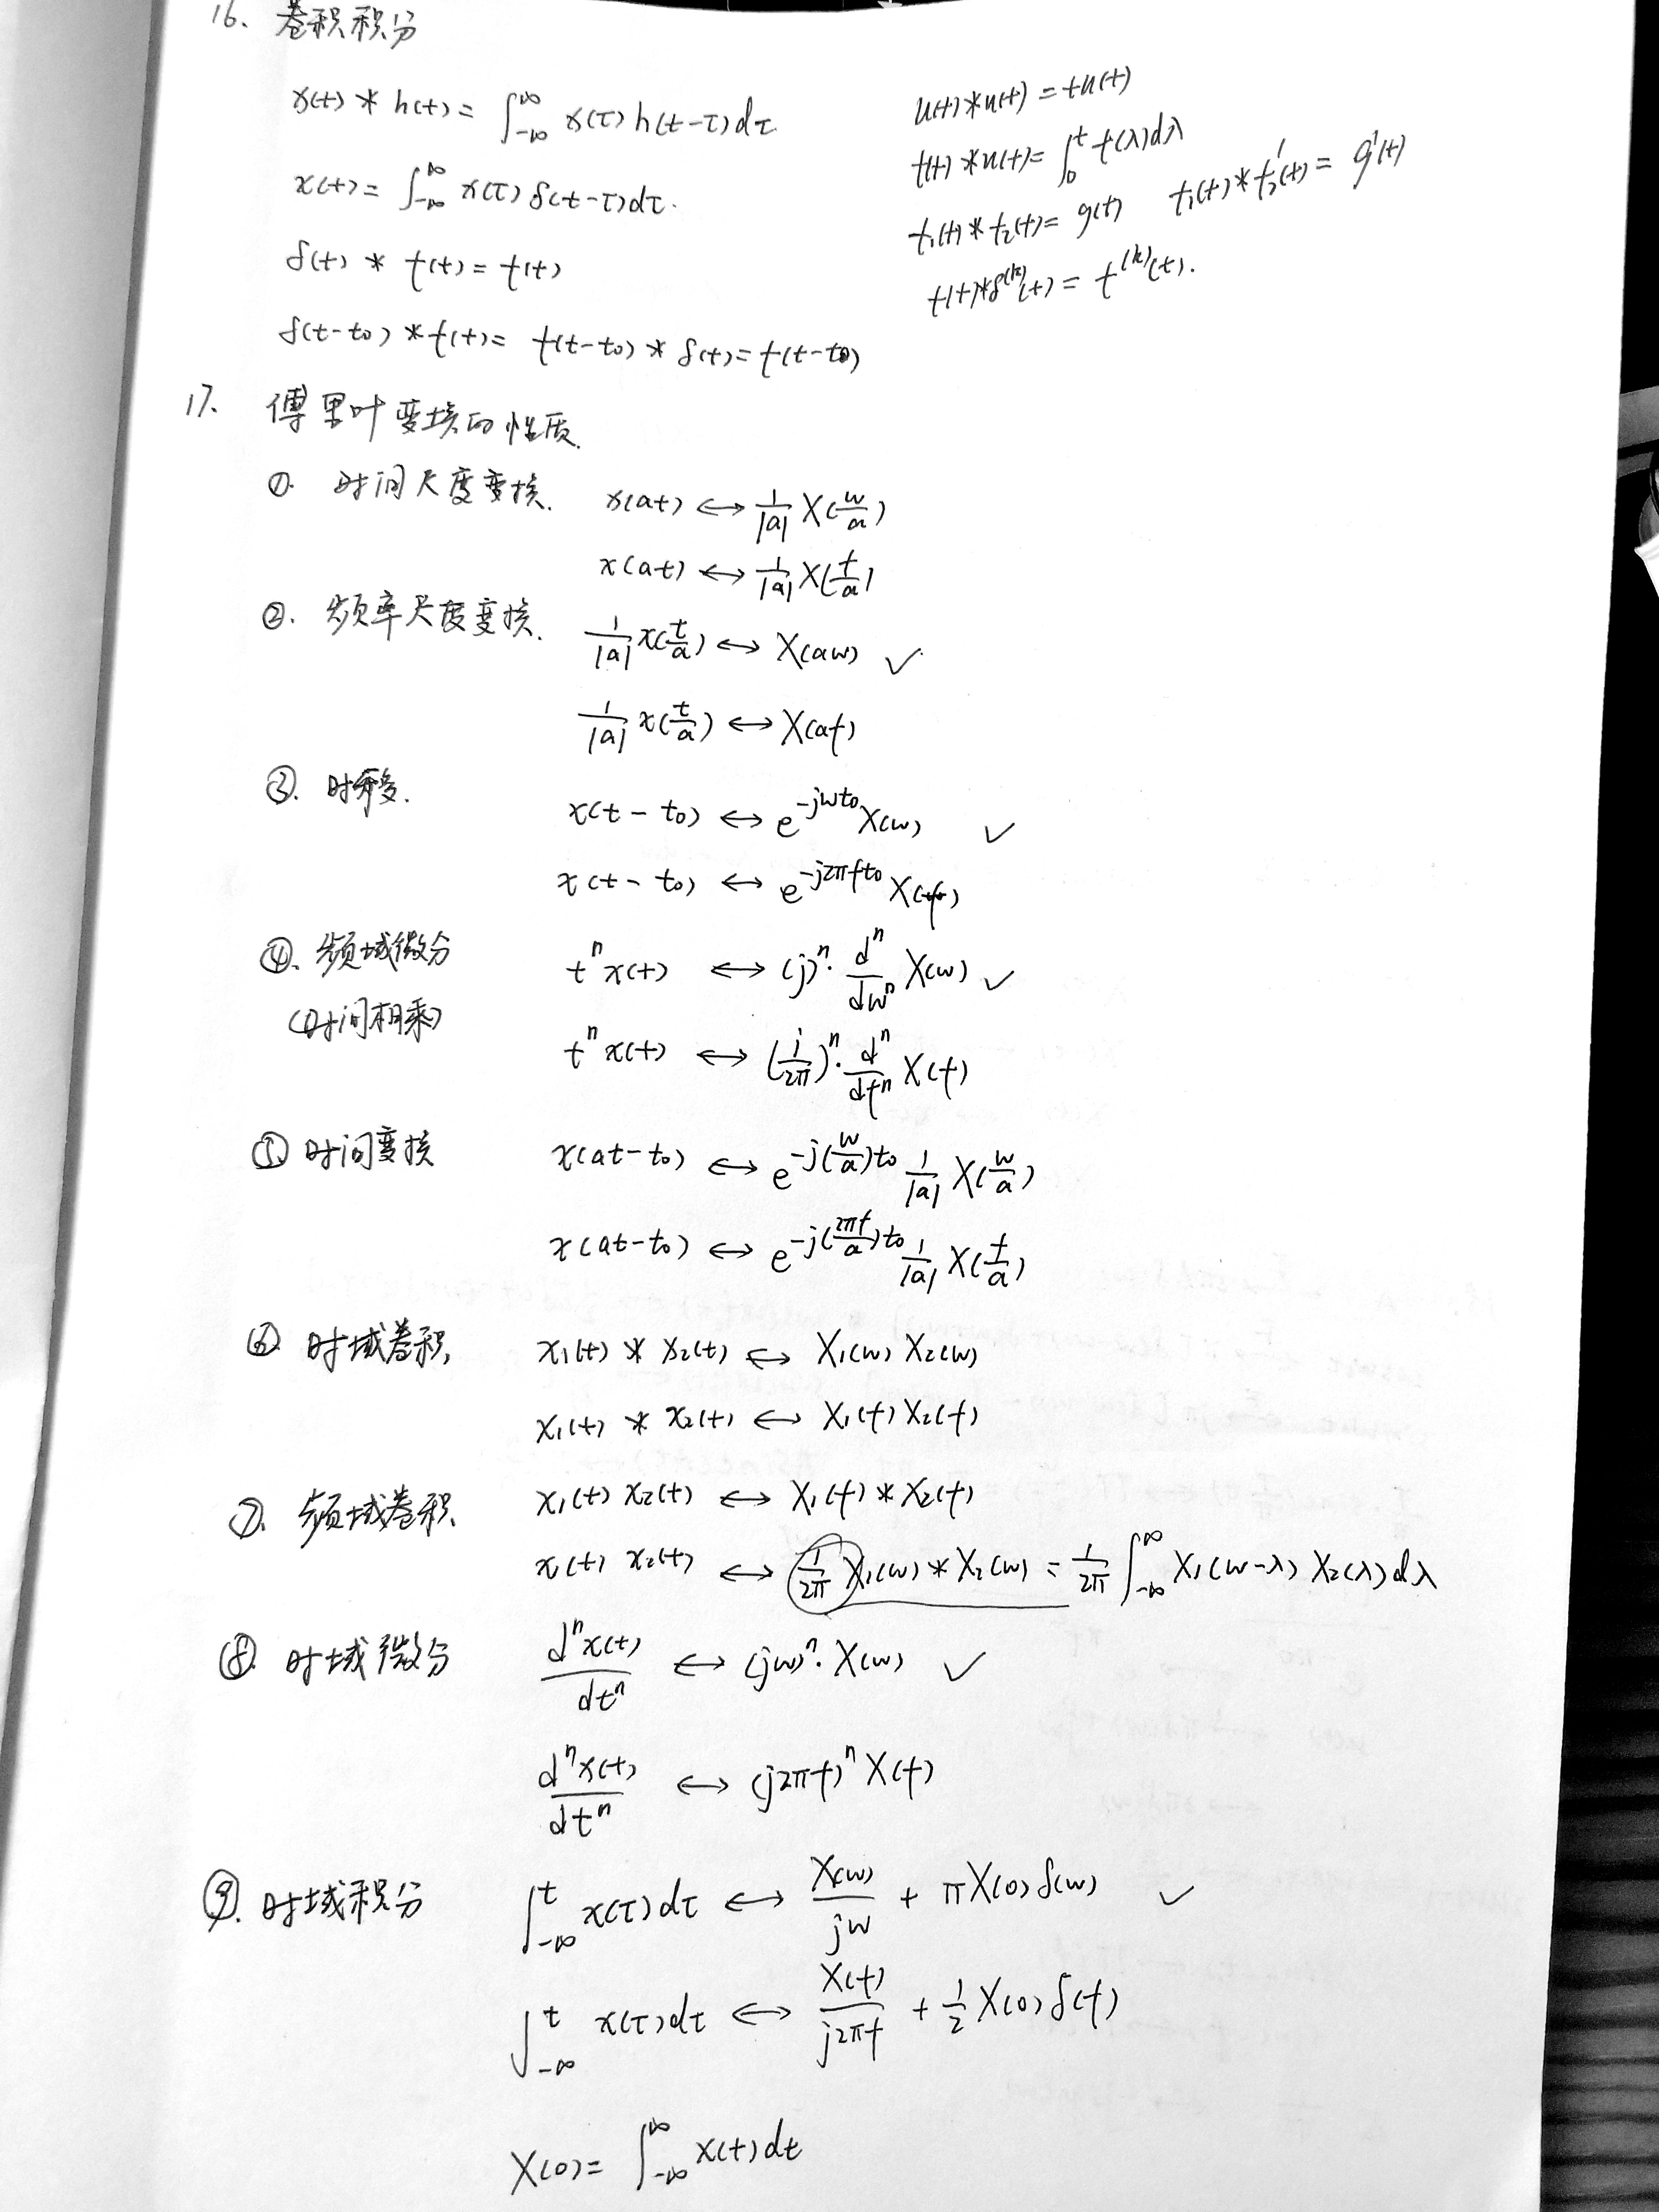 16. 卷积积分
x(t) * h(t) = ∫_{-∞}^{∞} x(τ) h(t-τ) dτ
x(t) = ∫_{-∞}^{∞} x(τ) δ(t-τ) dτ.
δ(t) * f(t) = f(t)
δ(t-t₀) * f(t) = f(t-t₀) * δ(t) = f(t-t₀)
u(t) * u(t) = tu(t)
f(t) * u(t) = ∫_0^t f(λ) dλ
f₁(t) * f₂(t) = g(t) f₁(t) * f₂'(t) = g'(t)
f(t) * δ^{(k)}(t) = f^{(k)}(t).
17. 傅里叶变换的性质.
①. 时间尺度变换. x(at) ↔ 1/|a| X(w/a)
x(at) ↔ 1/|a| X(f/a)
②. 频率尺度变换. 1/|a| x(t/a) ↔ X(aw) ✓
1/|a| x(t/a) ↔ X(af)
③. 时移. x(t-t₀) ↔ e^{-jwt₀} X(w) ✓
x(t-t₀) ↔ e^{-j2πft₀} X(f)
④. 频域微分 tⁿx(t) ↔ (j)ⁿ· dⁿ/dwⁿ X(w) ✓
(时间相乘) tⁿx(t) ↔ (j/2π)ⁿ· dⁿ/dfⁿ X(f)
⑤ 时间变换 x(at-t₀) ↔ e^{-j(w/a)t₀} 1/|a| X(w/a)
x(at-t₀) ↔ e^{-j(2πf/a)t₀} 1/|a| X(f/a)
⑥ 时域卷积, x₁(t) * x₂(t) ↔ X₁(w) X₂(w)
x₁(t) * x₂(t) ↔ X₁(f) X₂(f)
⑦. 频域卷积 x₁(t) x₂(t) ↔ X₁(f) * X₂(f)
x₁(t) x₂(t) ↔ 1/2π X₁(w) * X₂(w) = 1/2π ∫_{-∞}^{∞} X₁(w-λ) X₂(λ) dλ
⑧. 时域微分 dⁿx(t)/dtⁿ ↔ (jw)ⁿ· X(w) ✓
dⁿx(t)/dtⁿ ↔ (j2πf)ⁿ X(f)
⑨. 时域积分 ∫_{-∞}^t x(τ) dτ ↔ X(w)/jw + πX(0) δ(w) ✓
∫_{-∞}^t x(τ) dτ ↔ X(f)/j2πf + 1/2 X(0) δ(f)
X(0) = ∫_{-∞}^{∞} x(t) dt